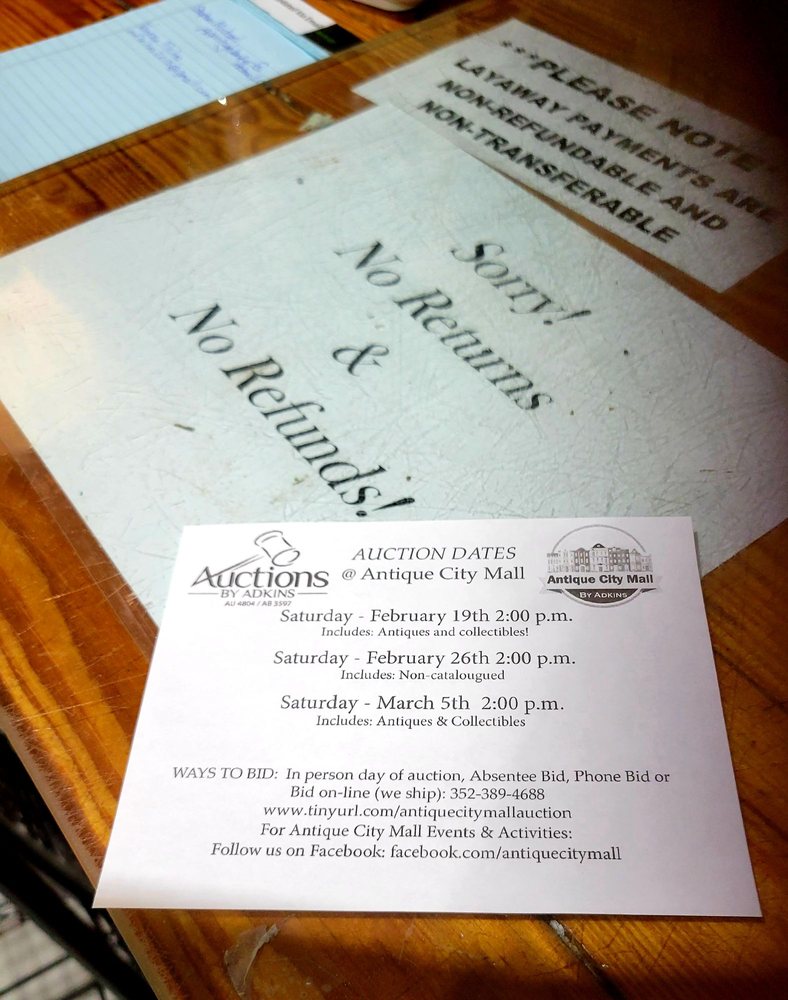 ***PLEASE NOTE
LAYAWAY PAYMENTS ARE
NON-REFUNDABLE AND
NON-TRANSFERABLE
Sorry!
No Returns
&
No Refunds!
Auctions
BY ADKINS
AU 4804 / AB 3597
AUCTION DATES
@ Antique City Mall
Antique City Mall
BY ADKINS
Saturday - February 19th 2:00 p.m.
Includes: Antiques and collectibles!
Saturday - February 26th 2:00 p.m.
Includes: Non-catalougued
Saturday - March 5th 2:00 p.m.
Includes: Antiques & Collectibles
WAYS TO BID: In person day of auction, Absentee Bid, Phone Bid or
Bid on-line (we ship): 352-389-4688
www.tinyurl.com/antiquecitymallauction
For Antique City Mall Events & Activities:
Follow us on Facebook: facebook.com/antiquecitymall